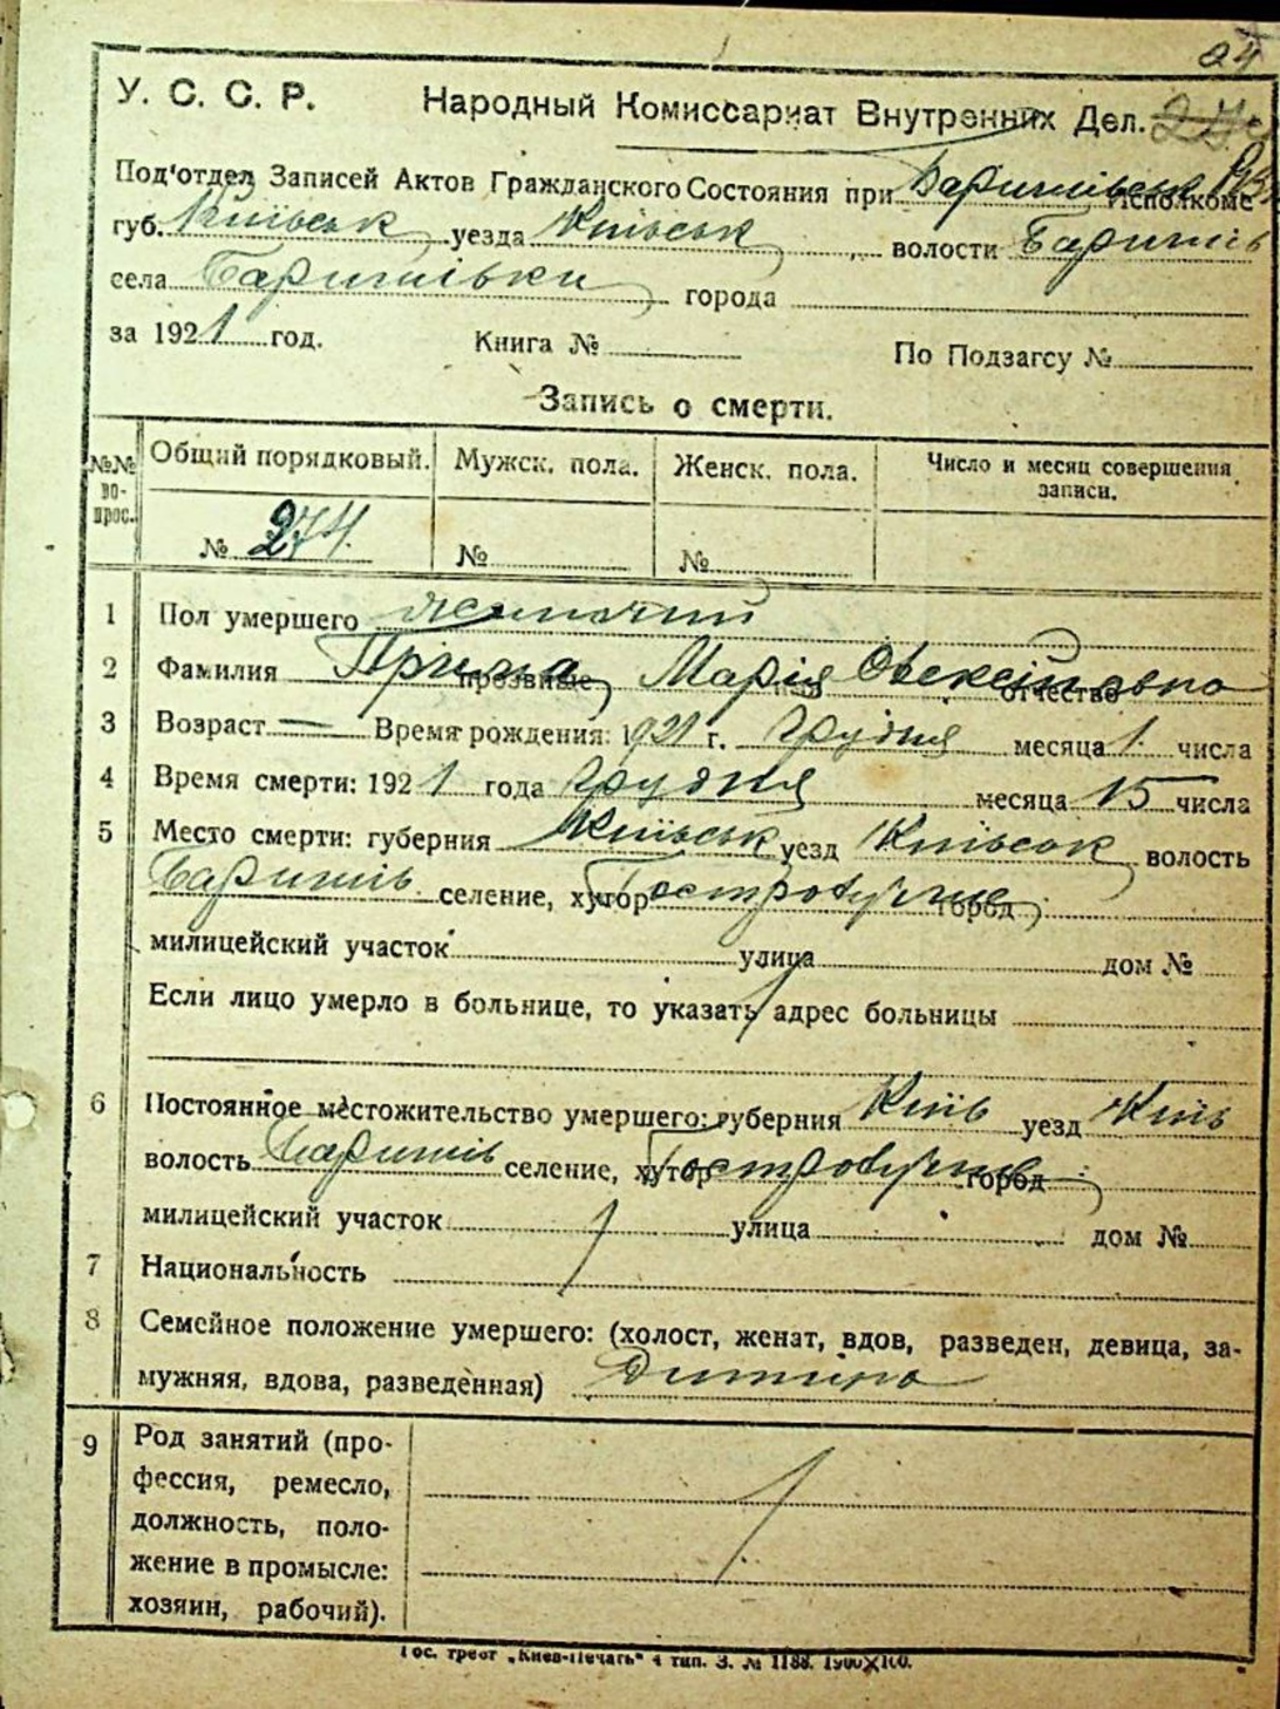 24
У. С. С. Р. Народный Комиссариат Внутренних Дел.
Под'отдел Записей Актов Гражданского Состояния при Баришівськ Исполкоме
губ. Київськ уезда Київськ волости Баришів
села Баришівки города
за 1921 год. Книга № По Подзагсу №
Запись о смерти.
№№ во-прос. Общий порядковый. Мужск. пола. Женск. пола. Число и месяц совершения записи.
№ 274. № №
1 Пол умершего жиночий
2 Фамилия Прима прозвище Марія имя Олексіївна отчество
3 Возраст — Время рождения: 1921 г. Грудня месяца 1 числа
4 Время смерти: 1921 года Грудня месяца 15 числа
5 Место смерти: губерния Київськ уезд Київськ волость
Баришів селение, хутор город
милицейский участок улица дом №
Если лицо умерло в больнице, то указать адрес больницы
6 Постоянное местожительство умершего: губерния Київ уезд Київ
волость Баришів селение, хутор город
милицейский участок улица дом №
7 Национальность
8 Семейное положение умершего: (холост, женат, вдов, разведен, девица, за-
мужняя, вдова, разведенная) Дитина
9 Род занятий (про-
фессия, ремесло,
должность, поло-
жение в промысле:
хозяин, рабочий).
Гос. трест „Киев-Печать" 4 тип. З. № 1188. 1900×100.